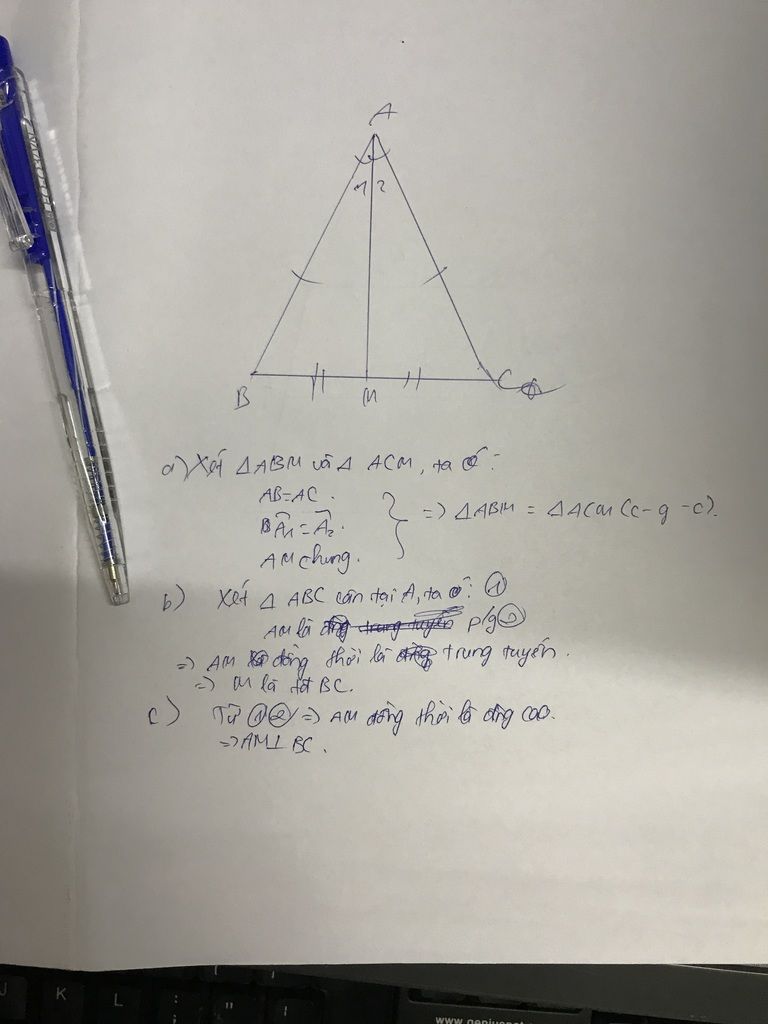 A
1 2
B
M
C
a) Xét ΔABM và Δ ACM, ta có:
AB=AC.
Â₁=Â₂.
AM chung.
=> ΔABM = ΔACM (c-g-c).
b) Xét Δ ABC cân tại A, ta có: ①
AM là p/g ②
=> AM đồng thời là trung tuyến.
=> M là tđ BC.
c) Từ ① ② => AM đồng thời là đg cao.
=> AM⊥BC.
J K L ; "
www.geniusnet